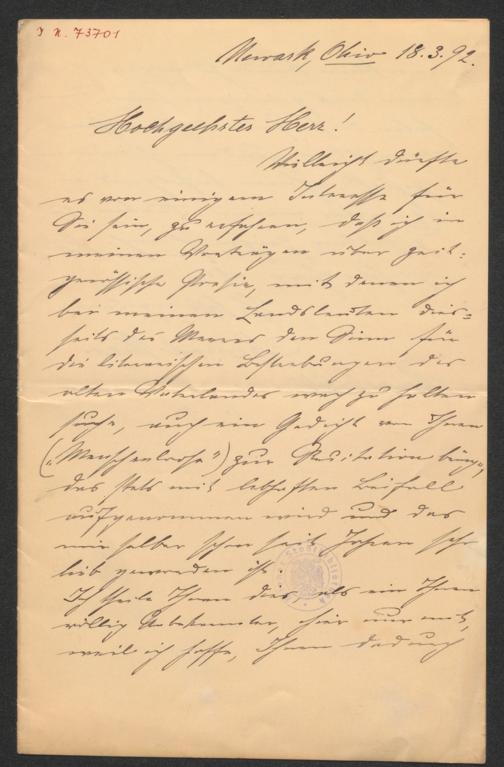 I. N. 73701
Newark, Ohio 18.3.92.
Hochgeehrter Herr!
Vielleicht dürfte
es von einigem Interesse für
Sie sein, zu erfahren, daß ich in
meinen Vorträgen über zeit-
genössische Poesie, mit denen ich
bei meinen Landsleuten dies=
seits des Meeres den Sinn für
die literarischen Bestrebungen des
alten Vaterlandes wach zu halten
suche, auch ein Gedicht von Ihnen
("Menschenloose") zur Recitation bringe,
das stets mit lebhaftem Beifall
aufgenommen wird und das
mir selber schon seit Jahren sehr
lieb geworden ist.
Ich theile Ihnen dies, als ein Ihnen
völlig Unbekannter, hier nur mit,
weil ich hoffe, Ihnen dadurch